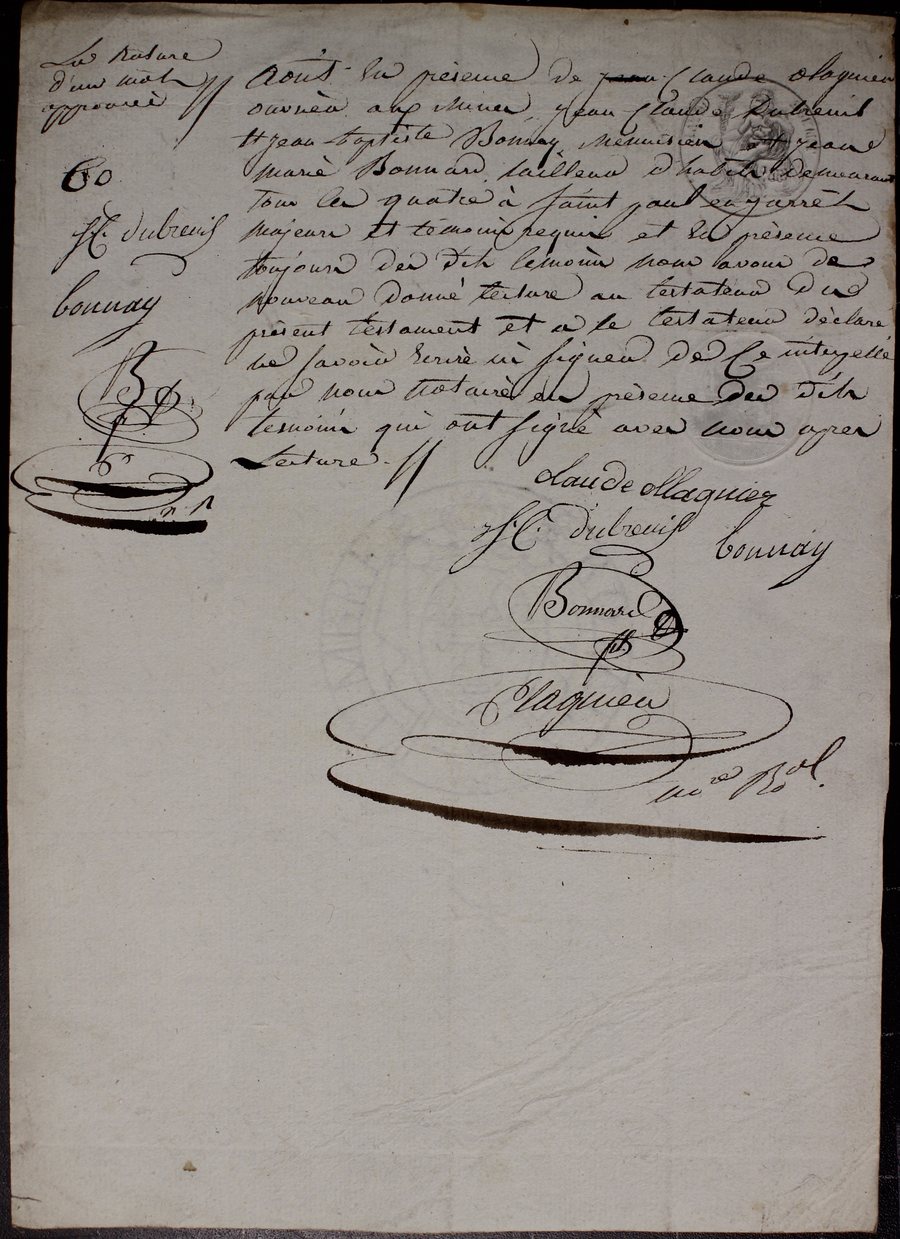 La Rature
d'un mot
approuvée
CO
J C. dubreuil
bonnay
B
P
n. R
Août En présence de Claude Magnien
ouvrier aux Mines Jean Claude Dubreuil
et Jean Baptiste Bonnay Menuisier et Jean
Marie Bonnard tailleur d'habits demeurant
tous les quatre à Saint paul en jarrêt
Majeurs et témoins requis et en présence
toujours des dits témoins nous avons de
nouveau donné lecture au testateur du
présent testament et a le testateur déclaré
ne savoir Ecrire ni signer de Ce interpellé
par nous Notaire en présence des dits
témoins qui ont signé avec nous après
Lecture. //
Claude Magnien
J. C. dubreuil
bonnay
Bonnard
Plagnieu
no.re R.al